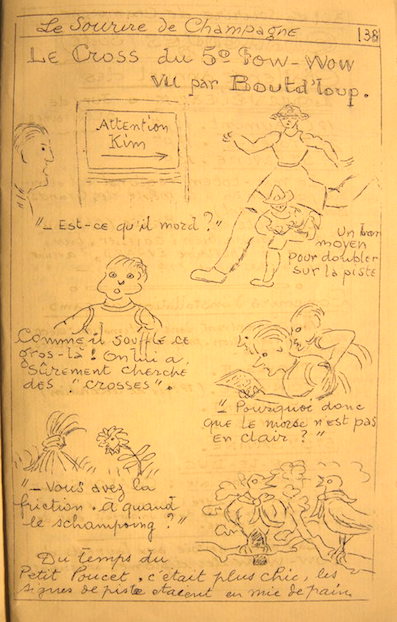 Le Sourire de Champagne
138
Le Cross du 5e Pow-Wow
vu par Boutd'loup.
Attention
Kim
"_ Est-ce qu'il mord ?"
Un bon
moyen
pour doubler
sur la piste
Comme il souffle ce
gros-là ! On lui a
sûrement cherché
des "crosses".
"_ Pourquoi donc
que le morse n'est pas
en clair ? "
"_ Vous avez la
friction. à quand
le schampoing ?"
Du temps du
Petit Poucet. c'était plus chic, les
signes de piste étaient en mie de pain.